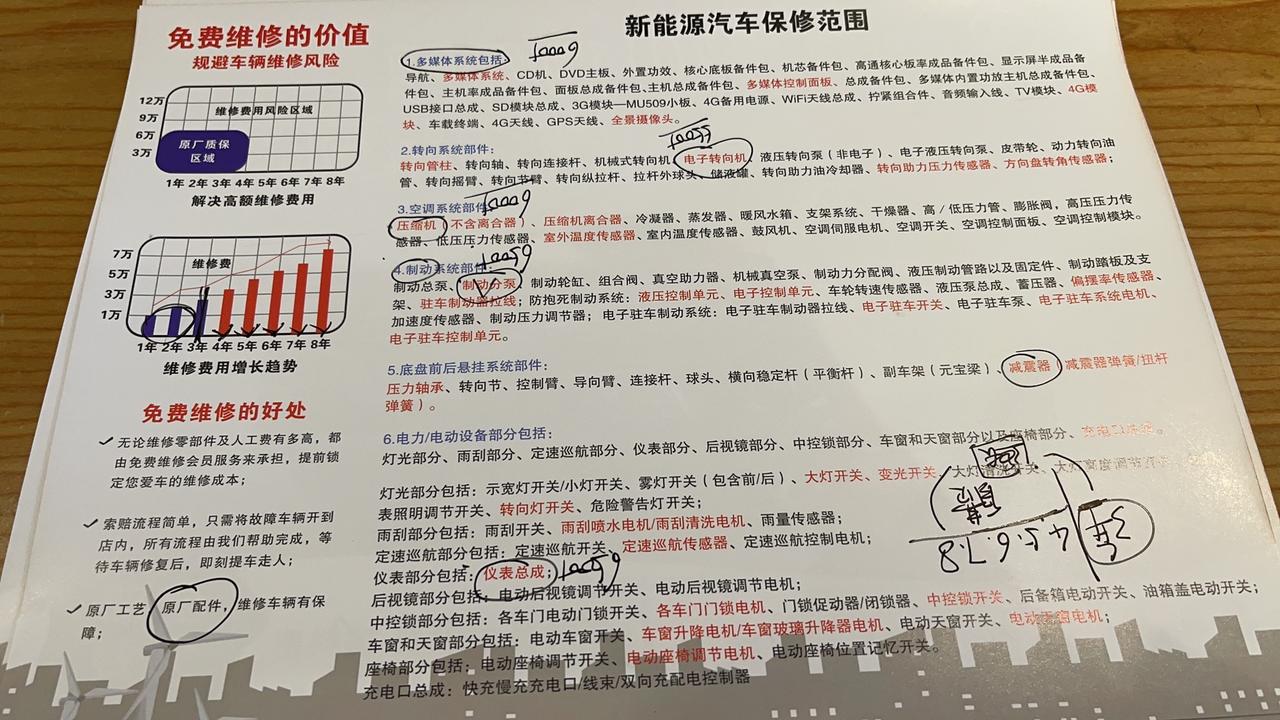 免费维修的价值
规避车辆维修风险
12万
9万
6万
3万
维修费用风险区域
原厂质保
区域
1年 2年 3年 4年 5年 6年 7年 8年
解决高额维修费用
7万
5万
3万
1万
维修费
1年 2年 3年 4年 5年 6年 7年 8年
维修费用增长趋势
免费维修的好处
无论维修零部件及人工费有多高，都
由免费维修会员服务来承担，提前锁
定您爱车的维修成本；
索赔流程简单，只需将故障车辆开到
店内，所有流程由我们帮助完成，等
待车辆修复后，即刻提车走人；
原厂工艺，原厂配件，维修车辆有保
障；
新能源汽车保修范围
1.多媒体系统包括：
导航、多媒体系统、CD机、DVD主板、外置功效、核心底板备件包、机芯备件包、高通核心板率成品备件包、显示屏半成品备
件包、主机率成品备件包、面板总成备件包、主机总成备件包、多媒体控制面板、总成备件包、多媒体内置功放主机总成备件包、
USB接口总成、SD模块总成、3G模块—MU509小板、4G备用电源、WiFi天线总成、拧紧组合件、音频输入线、TV模块、4G模
块、车载终端、4G天线、GPS天线、全景摄像头。
2.转向系统部件：
转向管柱、转向轴、转向连接杆、机械式转向机、电子转向机、液压转向泵（非电子）、电子液压转向泵、皮带轮、动力转向油
管、转向摇臂、转向节臂、转向纵拉杆、拉杆外球头、储液罐、转向助力油冷却器、转向助力压力传感器、方向盘转角传感器；
3.空调系统部件：
压缩机（不含离合器）、压缩机离合器、冷凝器、蒸发器、暖风水箱、支架系统、干燥器、高/低压力管、膨胀阀，高压压力传
感器、低压压力传感器、室外温度传感器、室内温度传感器、鼓风机、空调伺服电机、空调开关、空调控制面板、空调控制模块。
4.制动系统部件：
制动总泵、制动分泵、制动轮缸、组合阀、真空助力器、机械真空泵、制动力分配阀、液压制动管路以及固定件、制动踏板及支
架、驻车制动器拉线；防抱死制动系统：液压控制单元、电子控制单元、车轮转速传感器、液压泵总成、蓄压器、偏摆率传感器、
加速度传感器、制动压力调节器；电子驻车制动系统：电子驻车制动器拉线、电子驻车开关、电子驻车泵、电子驻车系统电机、
电子驻车控制单元。
5.底盘前后悬挂系统部件：
压力轴承、转向节、控制臂、导向臂、连接杆、球头、横向稳定杆（平衡杆）、副车架（元宝梁）、减震器（减震器弹簧/扭杆
弹簧）。
6.电力/电动设备部分包括：
灯光部分、雨刮部分、定速巡航部分、仪表部分、后视镜部分、中控锁部分、车窗和天窗部分以及座椅部分、充电口总成。
灯光部分包括：示宽灯开关/小灯开关、雾灯开关（包含前/后）、大灯开关、变光开关、大灯清洗开关、大灯高度调节开关
表照明调节开关、转向灯开关、危险警告灯开关；
雨刮部分包括：雨刮开关、雨刮喷水电机/雨刮清洗电机、雨量传感器；
定速巡航部分包括：定速巡航开关、定速巡航传感器、定速巡航控制电机；
仪表部分包括：仪表总成；
后视镜部分包括：电动后视镜调节开关、电动后视镜调节电机；
中控锁部分包括：各车门电动门锁开关、各车门门锁电机、门锁促动器/闭锁器、中控锁开关、后备箱电动开关、油箱盖电动开关；
车窗和天窗部分包括：电动车窗开关、车窗升降电机/车窗玻璃升降器电机、电动天窗开关、电动天窗电机；
座椅部分包括：电动座椅调节开关、电动座椅调节电机、电动座椅位置记忆开关。
充电口总成：快充慢充充电口/线束/双向充配电控制器
3年
4.5.6.7.8